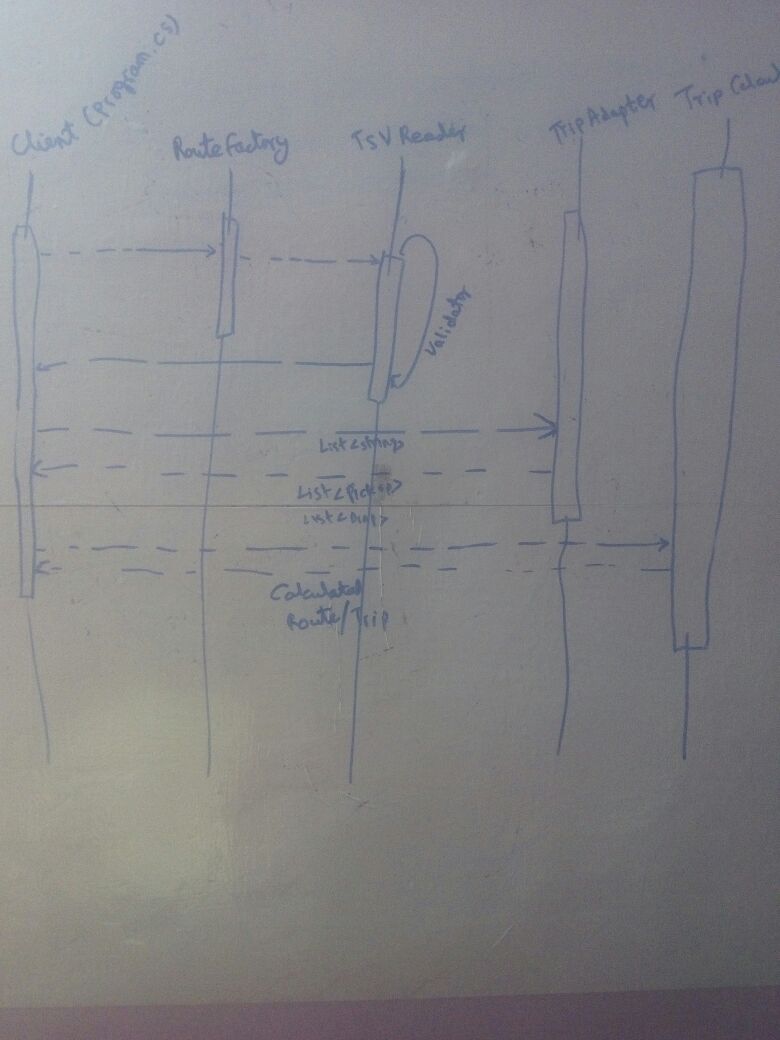 Client (Program.cs)
RouteFactory
TSVReader
TripAdapter
Trip
Validator
List<string>
List<Pickup>
List<Drop>
Calculated
Route/Trip